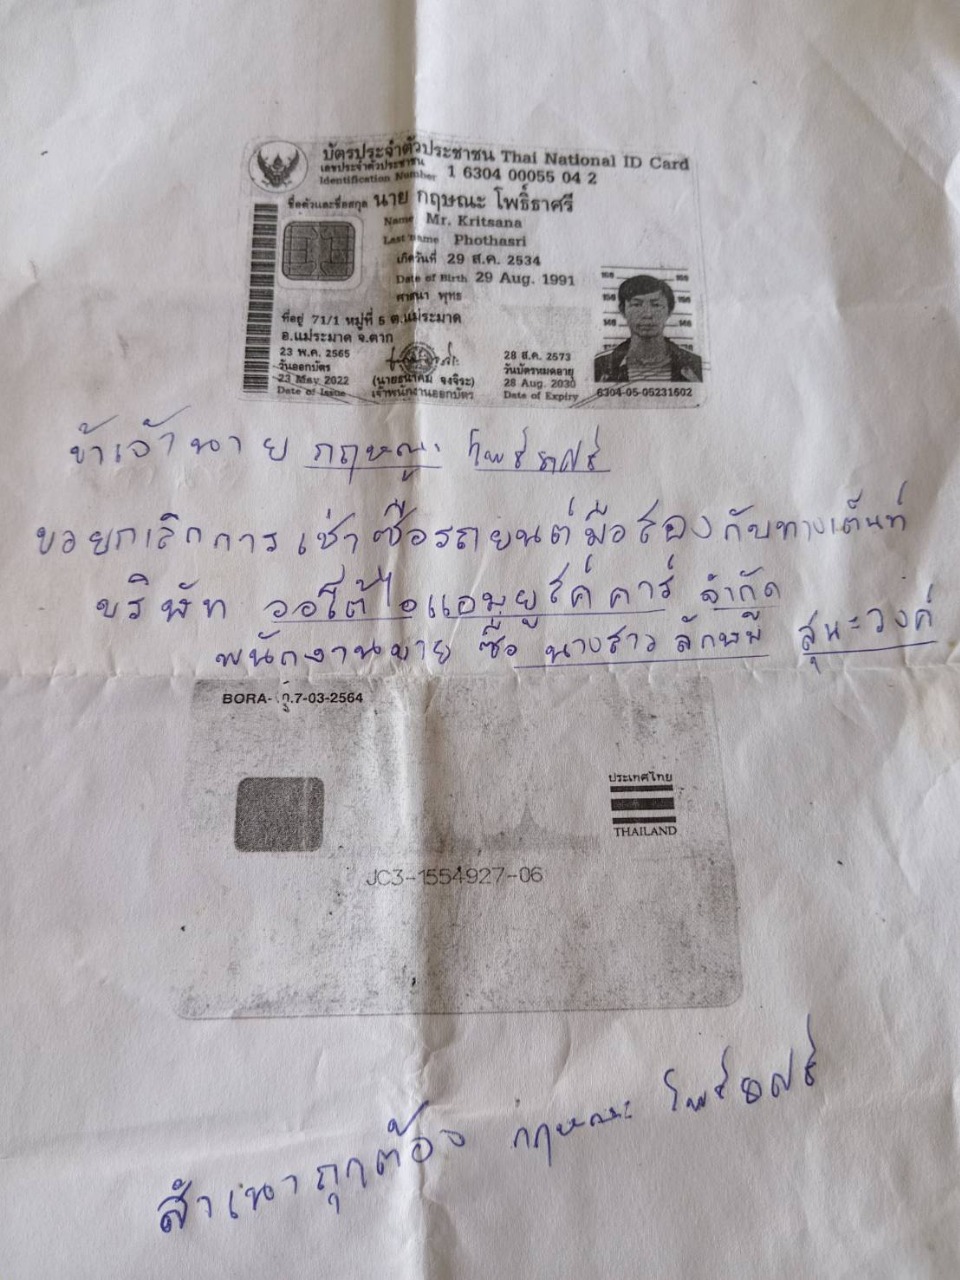 บัตรประจำตัวประชาชน Thai National ID Card
เลขประจำตัวประชาชน
Identification Number 1 6304 00055 04 2
ชื่อตัวและชื่อสกุล นาย กฤษณะ โพธิ์ธาศรี
Name Mr. Kritsana
Last name Phothasri
เกิดวันที่ 29 ส.ค. 2534
Date of Birth 29 Aug. 1991
ศาสนา พุทธ
ที่อยู่ 71/1 หมู่ที่ 5 ต.แม่ระมาด
อ.แม่ระมาด จ.ตาก
23 พ.ค. 2565
วันออกบัตร
23 May 2022
Date of Issue
(นายธนาคม จงจิระ)
เจ้าพนักงานออกบัตร
28 ส.ค. 2573
วันบัตรหมดอายุ
28 Aug. 2030
Date of Expiry
6304-05-05231602
ข้าเจ้านาย กฤษณะ โพธิ์ธาศรี
ขอยกเลิกการเช่าซื้อรถยนต์มือสองกับทางเต็นท์
บริษัท ออโต้ไอแอมยูสค์คาร์ จำกัด
พนักงานขาย ชื่อ นางสาว ลักษมี สุนะวงค์
BORA- .7-03-2564
ประเทศไทย
THAILAND
JC3-1554927-06
สำเนาถูกต้อง กฤษณะ โพธิ์ธาศรี